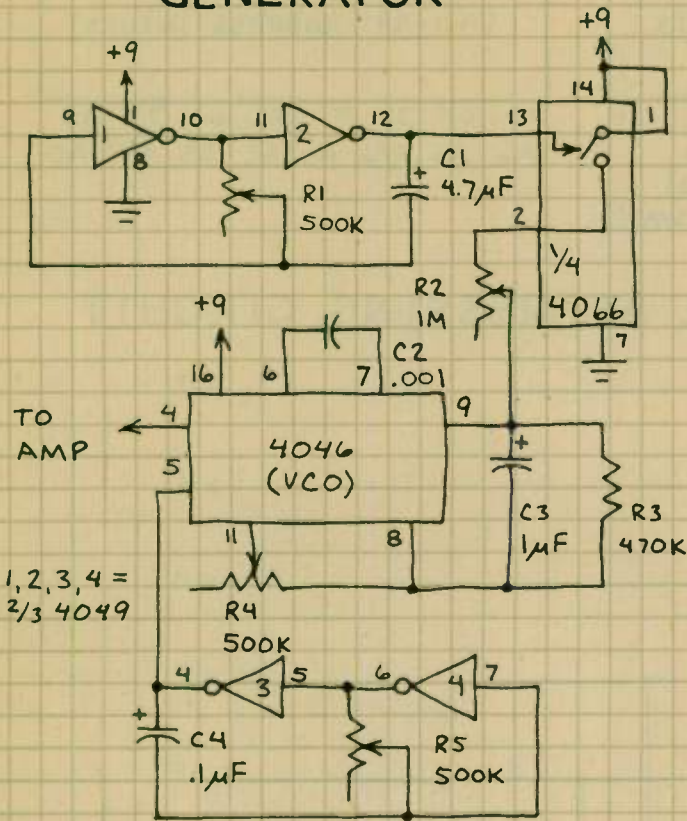 GENERATOR
+9
+9
14
1
9
1
1
10
11
2
12
13
8
C1
4.7µF
R1
500K
2
1/4
4066
7
R2
1M
+9
16
6
7
C2
.001
TO
AMP
4
5
4046
(VCO)
9
11
8
C3
1µF
R3
470K
1, 2, 3, 4 =
2/3 4049
R4
500K
4
3
5
6
4
7
+
C4
.1µF
R5
500K